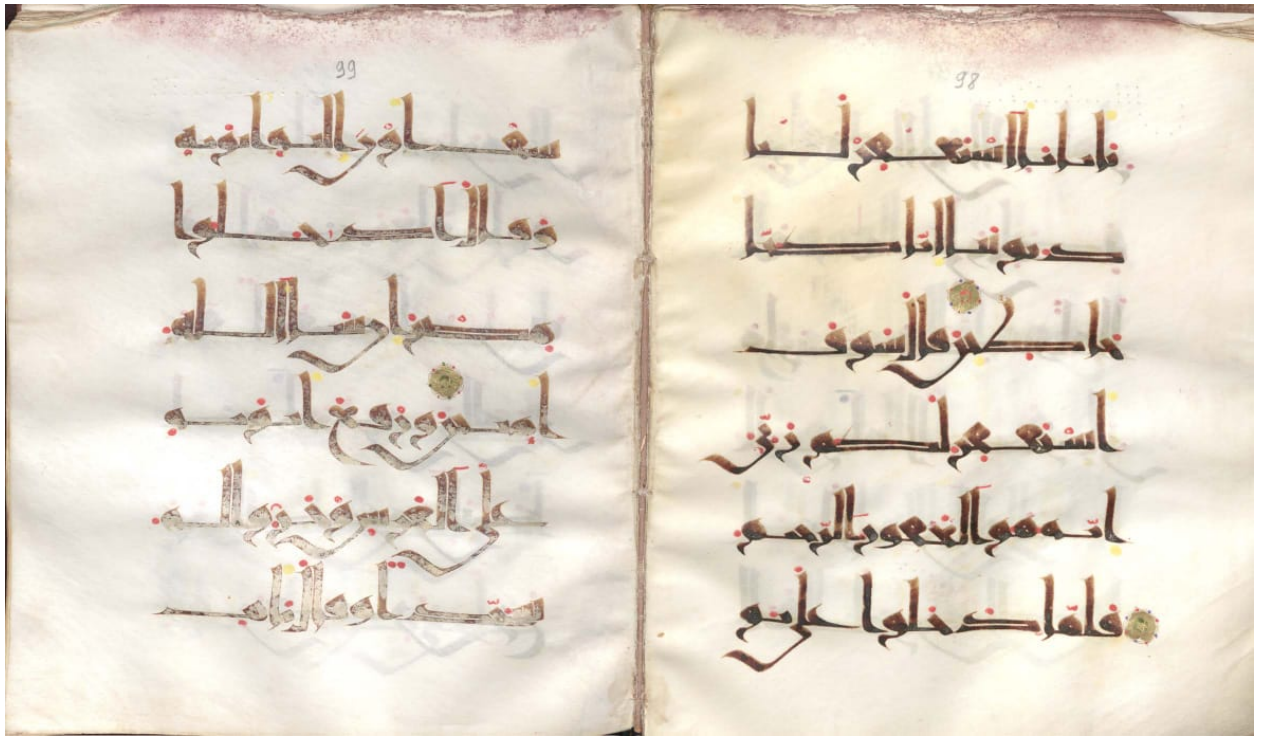 98
يابانا استغفر لنا
ذنوبنا انا كنا
خاطين قال سوف
استغفر لكم ربي
انه هو الغفور الرحيم
فلما دخلوا على يو
99
سف اوى اليه ابويه
وقال ادخلوا
مصر ان شا الله
امنين ورفع ابويه
على العرش وخروا له
سجدا وقال يابت